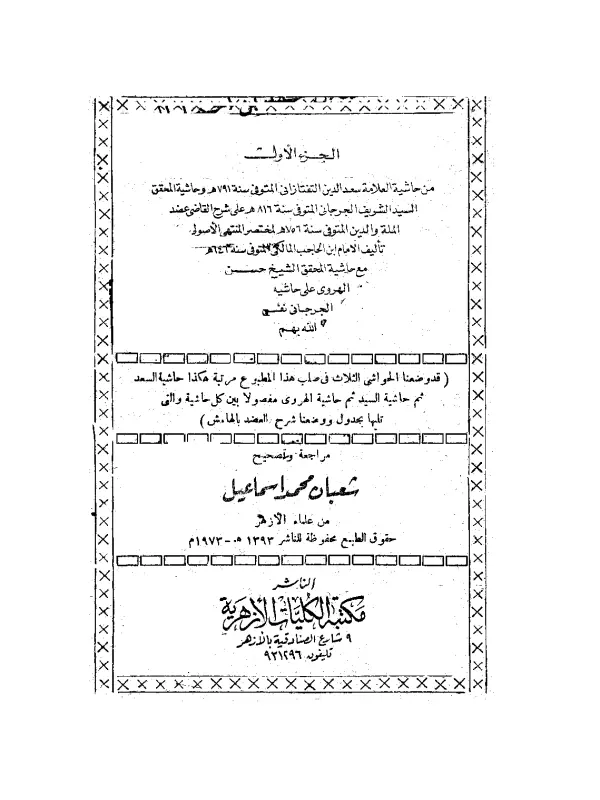 الجزء الأول
من حاشية العلامة سعد الدين التفتازاني المتوفى سنة ٧٩١هـ وحاشية المحقق
السيد الشريف الجرجاني المتوفى سنة ٨١٦ هـ على شرح القاضي عضد
الملة والدين المتوفى سنة ٧٥٦هـ لمختصر المنتهى الأصولى
تأليف الامام ابن الحاجب المالكى المتوفى سنة ٦٤٦هـ
مع حاشية المحقق الشيخ حسن
الهروى على حاشية
الجرجاني نفع
الله بهم
( قد وضعنا الحواشى الثلاث فى صلب هذا المطبوع مرتبة هكذا حاشية السعد
ثم حاشية السيد ثم حاشية الهروى مفصولا بين كل حاشية والتى
تليها بجدول ووضعنا شرح العضد بالهامش )
مراجعة وتصحيح
شعبان محمد اسماعيل
من علماء الأزهر
حقوق الطبع محفوظة للناشر ١٣٩٣ هـ - ١٩٧٣م
الناشر
مكتبة الكليات الأزهرية
٩ شارع الصنادقية بالأزهر
تليفون ٩٣١٢٩٦